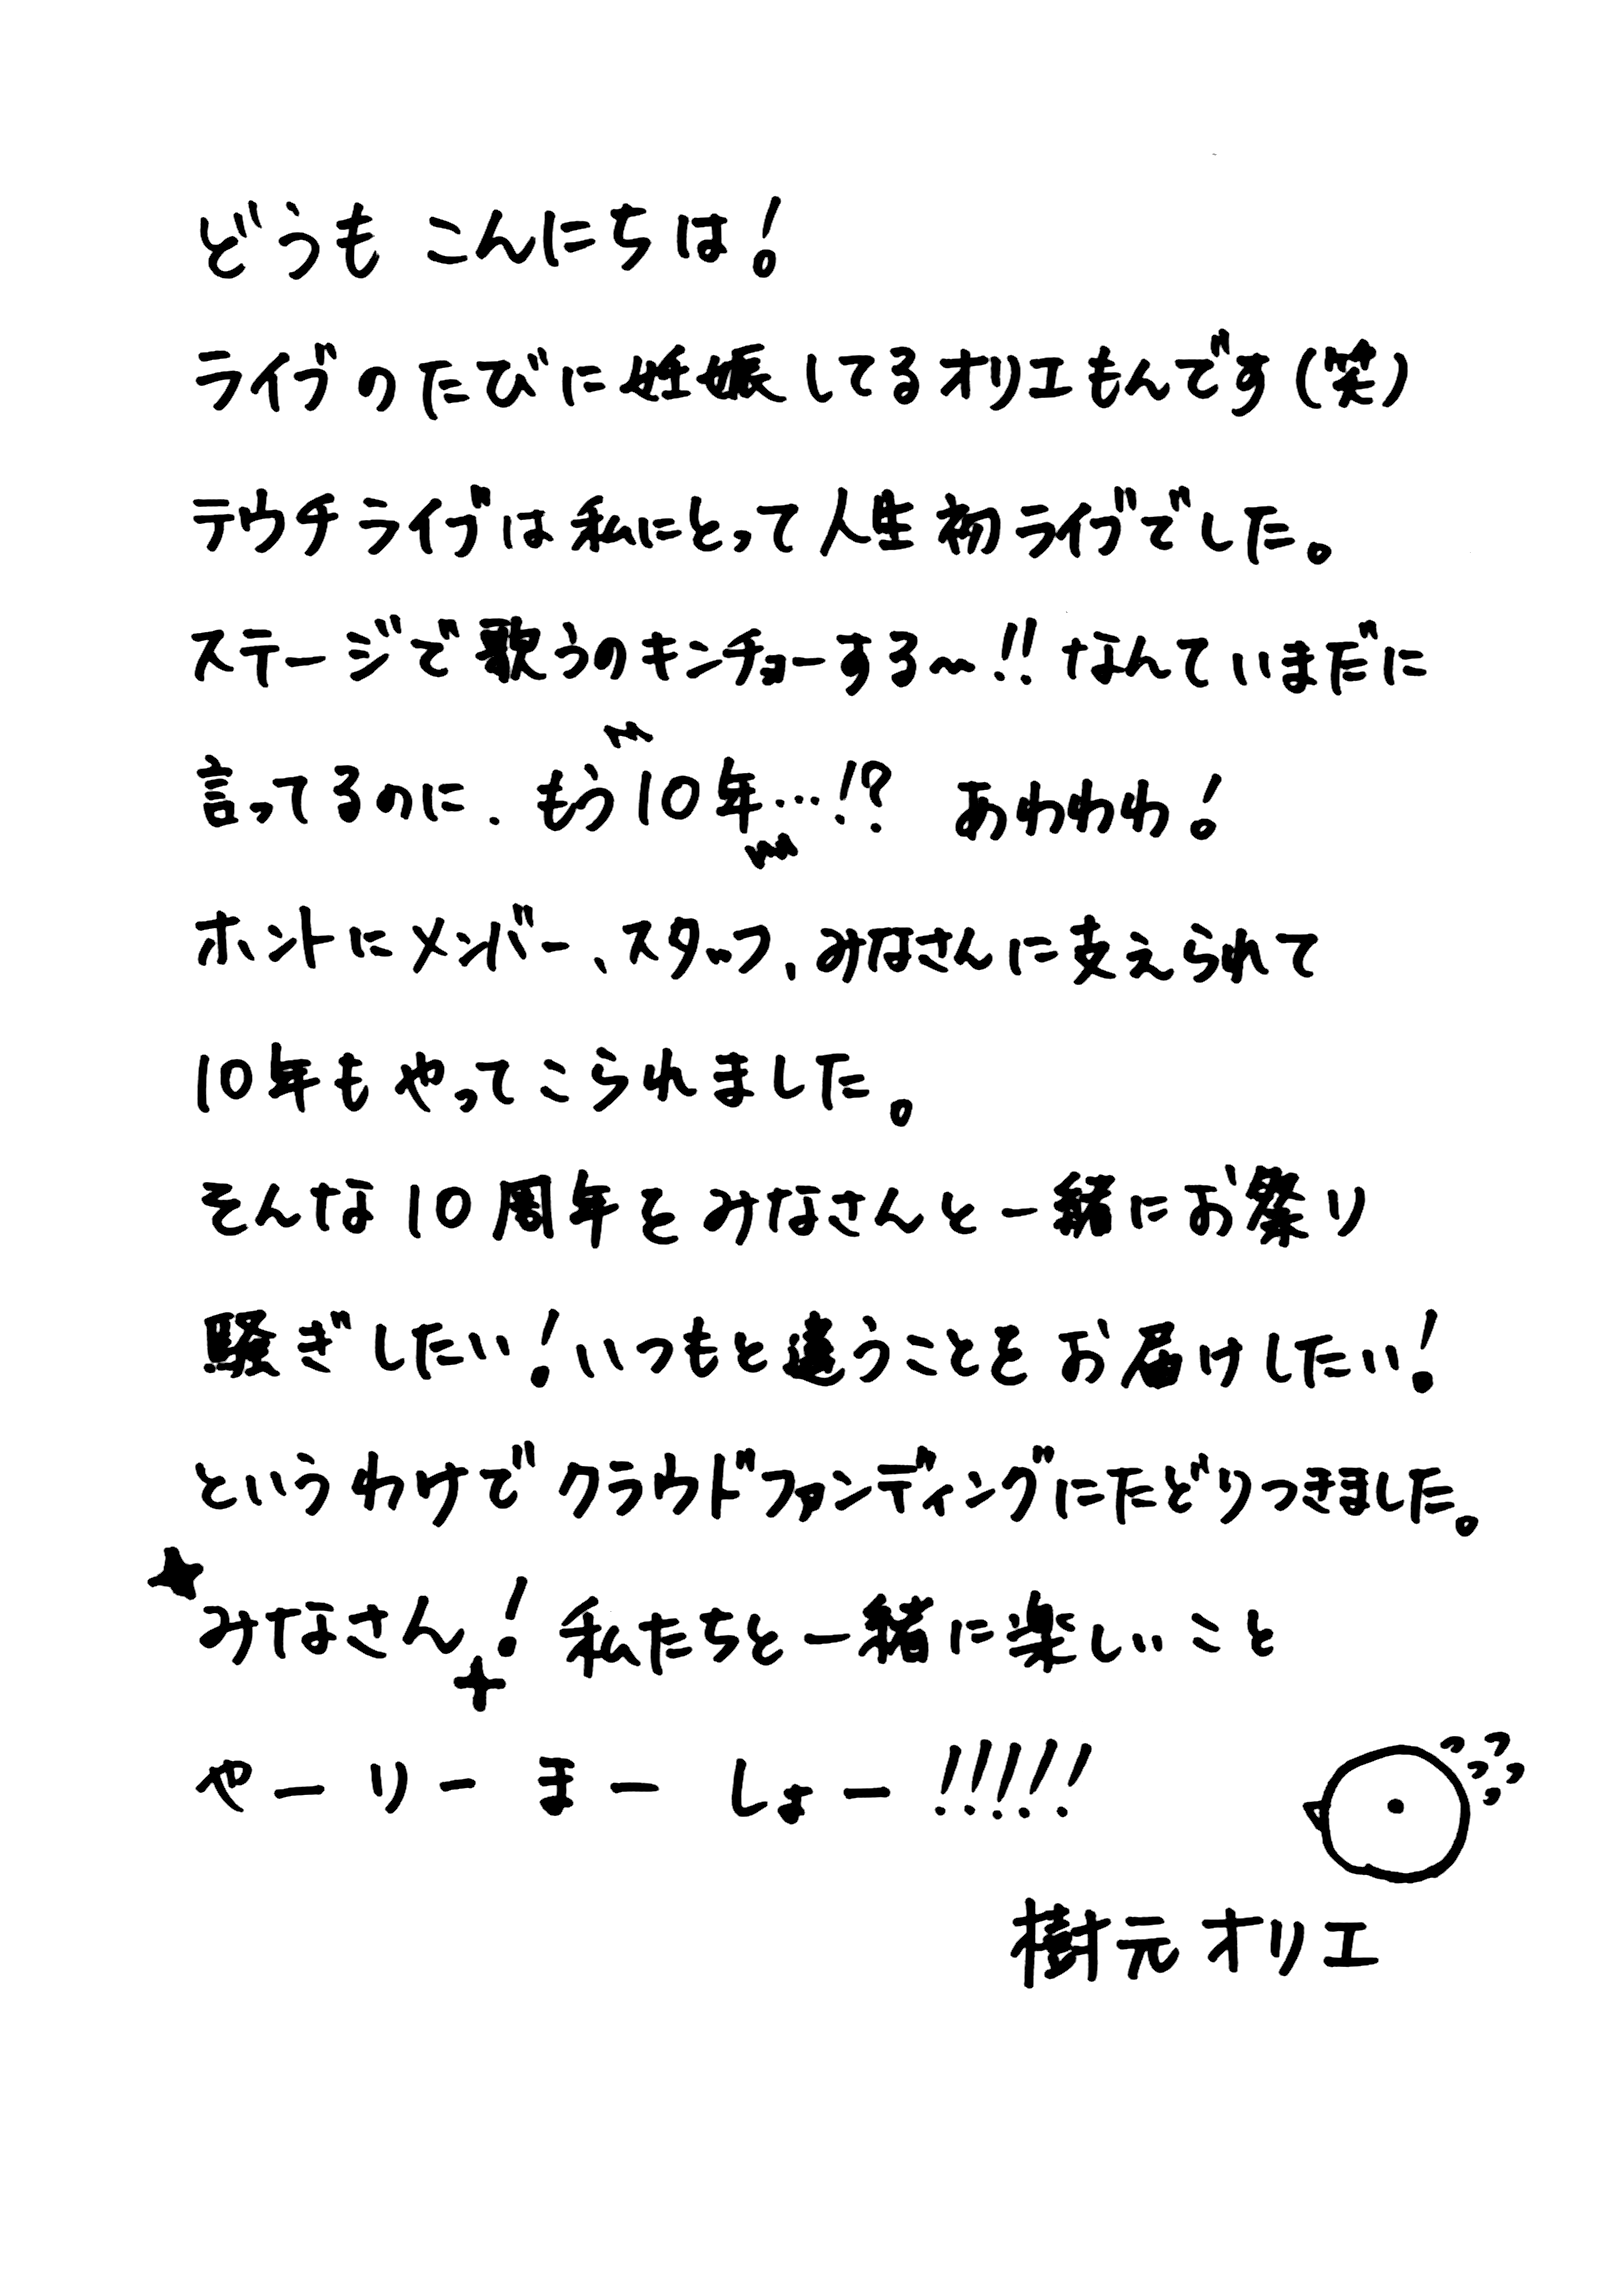 どうも こんにちは!
ライブのたびに妊娠してるオリエもんです(笑)
テウチライブは私にとって人生初ライブでした。
ステージで歌うのキンチョーする〜!!なんていまだに
言ってるのに、もう10年…!? あわわわ!
ホントにメンバー、スタッフ、みなさんに支えられて
10年もやってこられました。
そんな10周年をみなさんと一緒にお祭り
騒ぎしたい!いつもと違うことをお届けしたい!
というわけでクラウドファンディングにたどりつきました。
みなさん!私たちと一緒に楽しいこと
やーりーまーしょー!!!!!
樹元オリエ